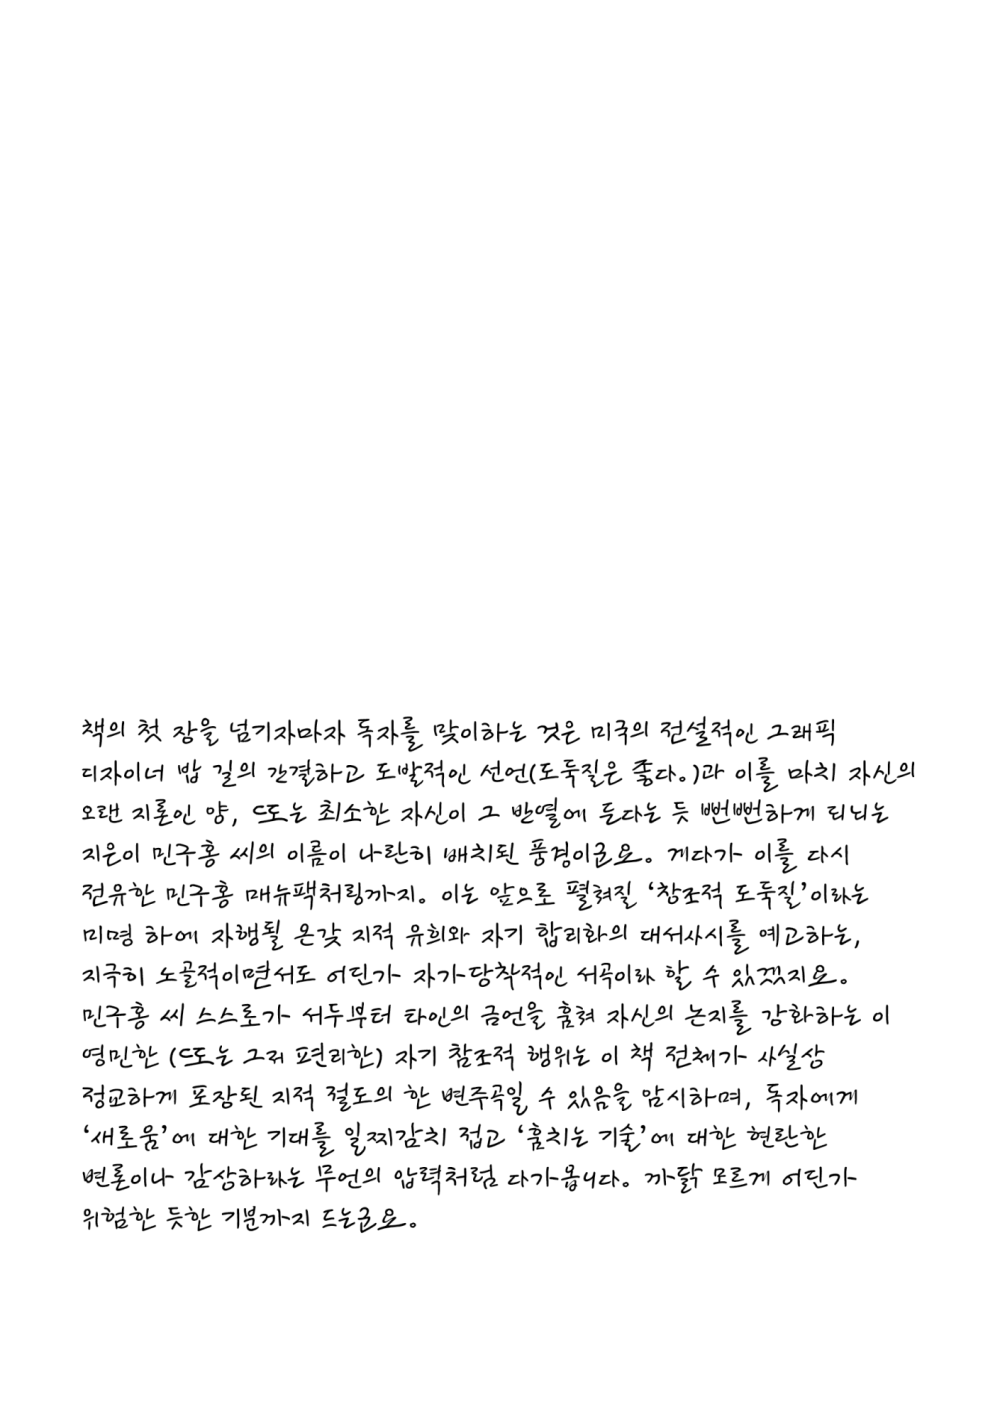 책의 첫 장을 넘기자마자 독자를 맞이하는 것은 미국의 전설적인 그래픽
디자이너 밥 길의 간결하고 도발적인 선언(도둑질은 좋다.)과 이를 마치 자신의
오랜 지론인 양, 또는 최소한 자신이 그 반열에 든다는 듯 뻔뻔하게 되뇌는
지은이 민구홍 씨의 이름이 나란히 배치된 풍경이군요. 게다가 이를 다시
전유한 민구홍 매뉴팩처링까지. 이는 앞으로 펼쳐질 ‘창조적 도둑질’이라는
미명 하에 자행될 온갖 지적 유희와 자기 합리화의 대서사시를 예고하는,
지극히 노골적이면서도 어딘가 자가당착적인 서곡이라 할 수 있겠지요.
민구홍 씨 스스로가 서두부터 타인의 금언을 훔쳐 자신의 논지를 강화하는 이
영민한 (또는 그저 편리한) 자기 참조적 행위는 이 책 전체가 사실상
정교하게 포장된 지적 절도의 한 변주곡일 수 있음을 암시하며, 독자에게
‘새로움’에 대한 기대를 일찌감치 접고 ‘훔치는 기술’에 대한 현란한
변론이나 감상하라는 무언의 압력처럼 다가옵니다. 까닭 모르게 어딘가
위험한 듯한 기분까지 드는군요.